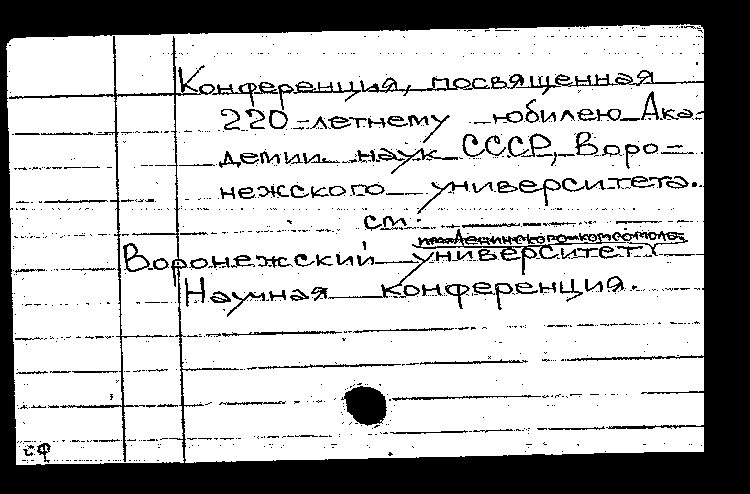 Конференция, посвященная
220-летнему юбилею Ака-
демии наук СССР, Воро-
нежского университета.
см.
им. Ленинского комсомола
Воронежский университет
Научная конференция.
сф